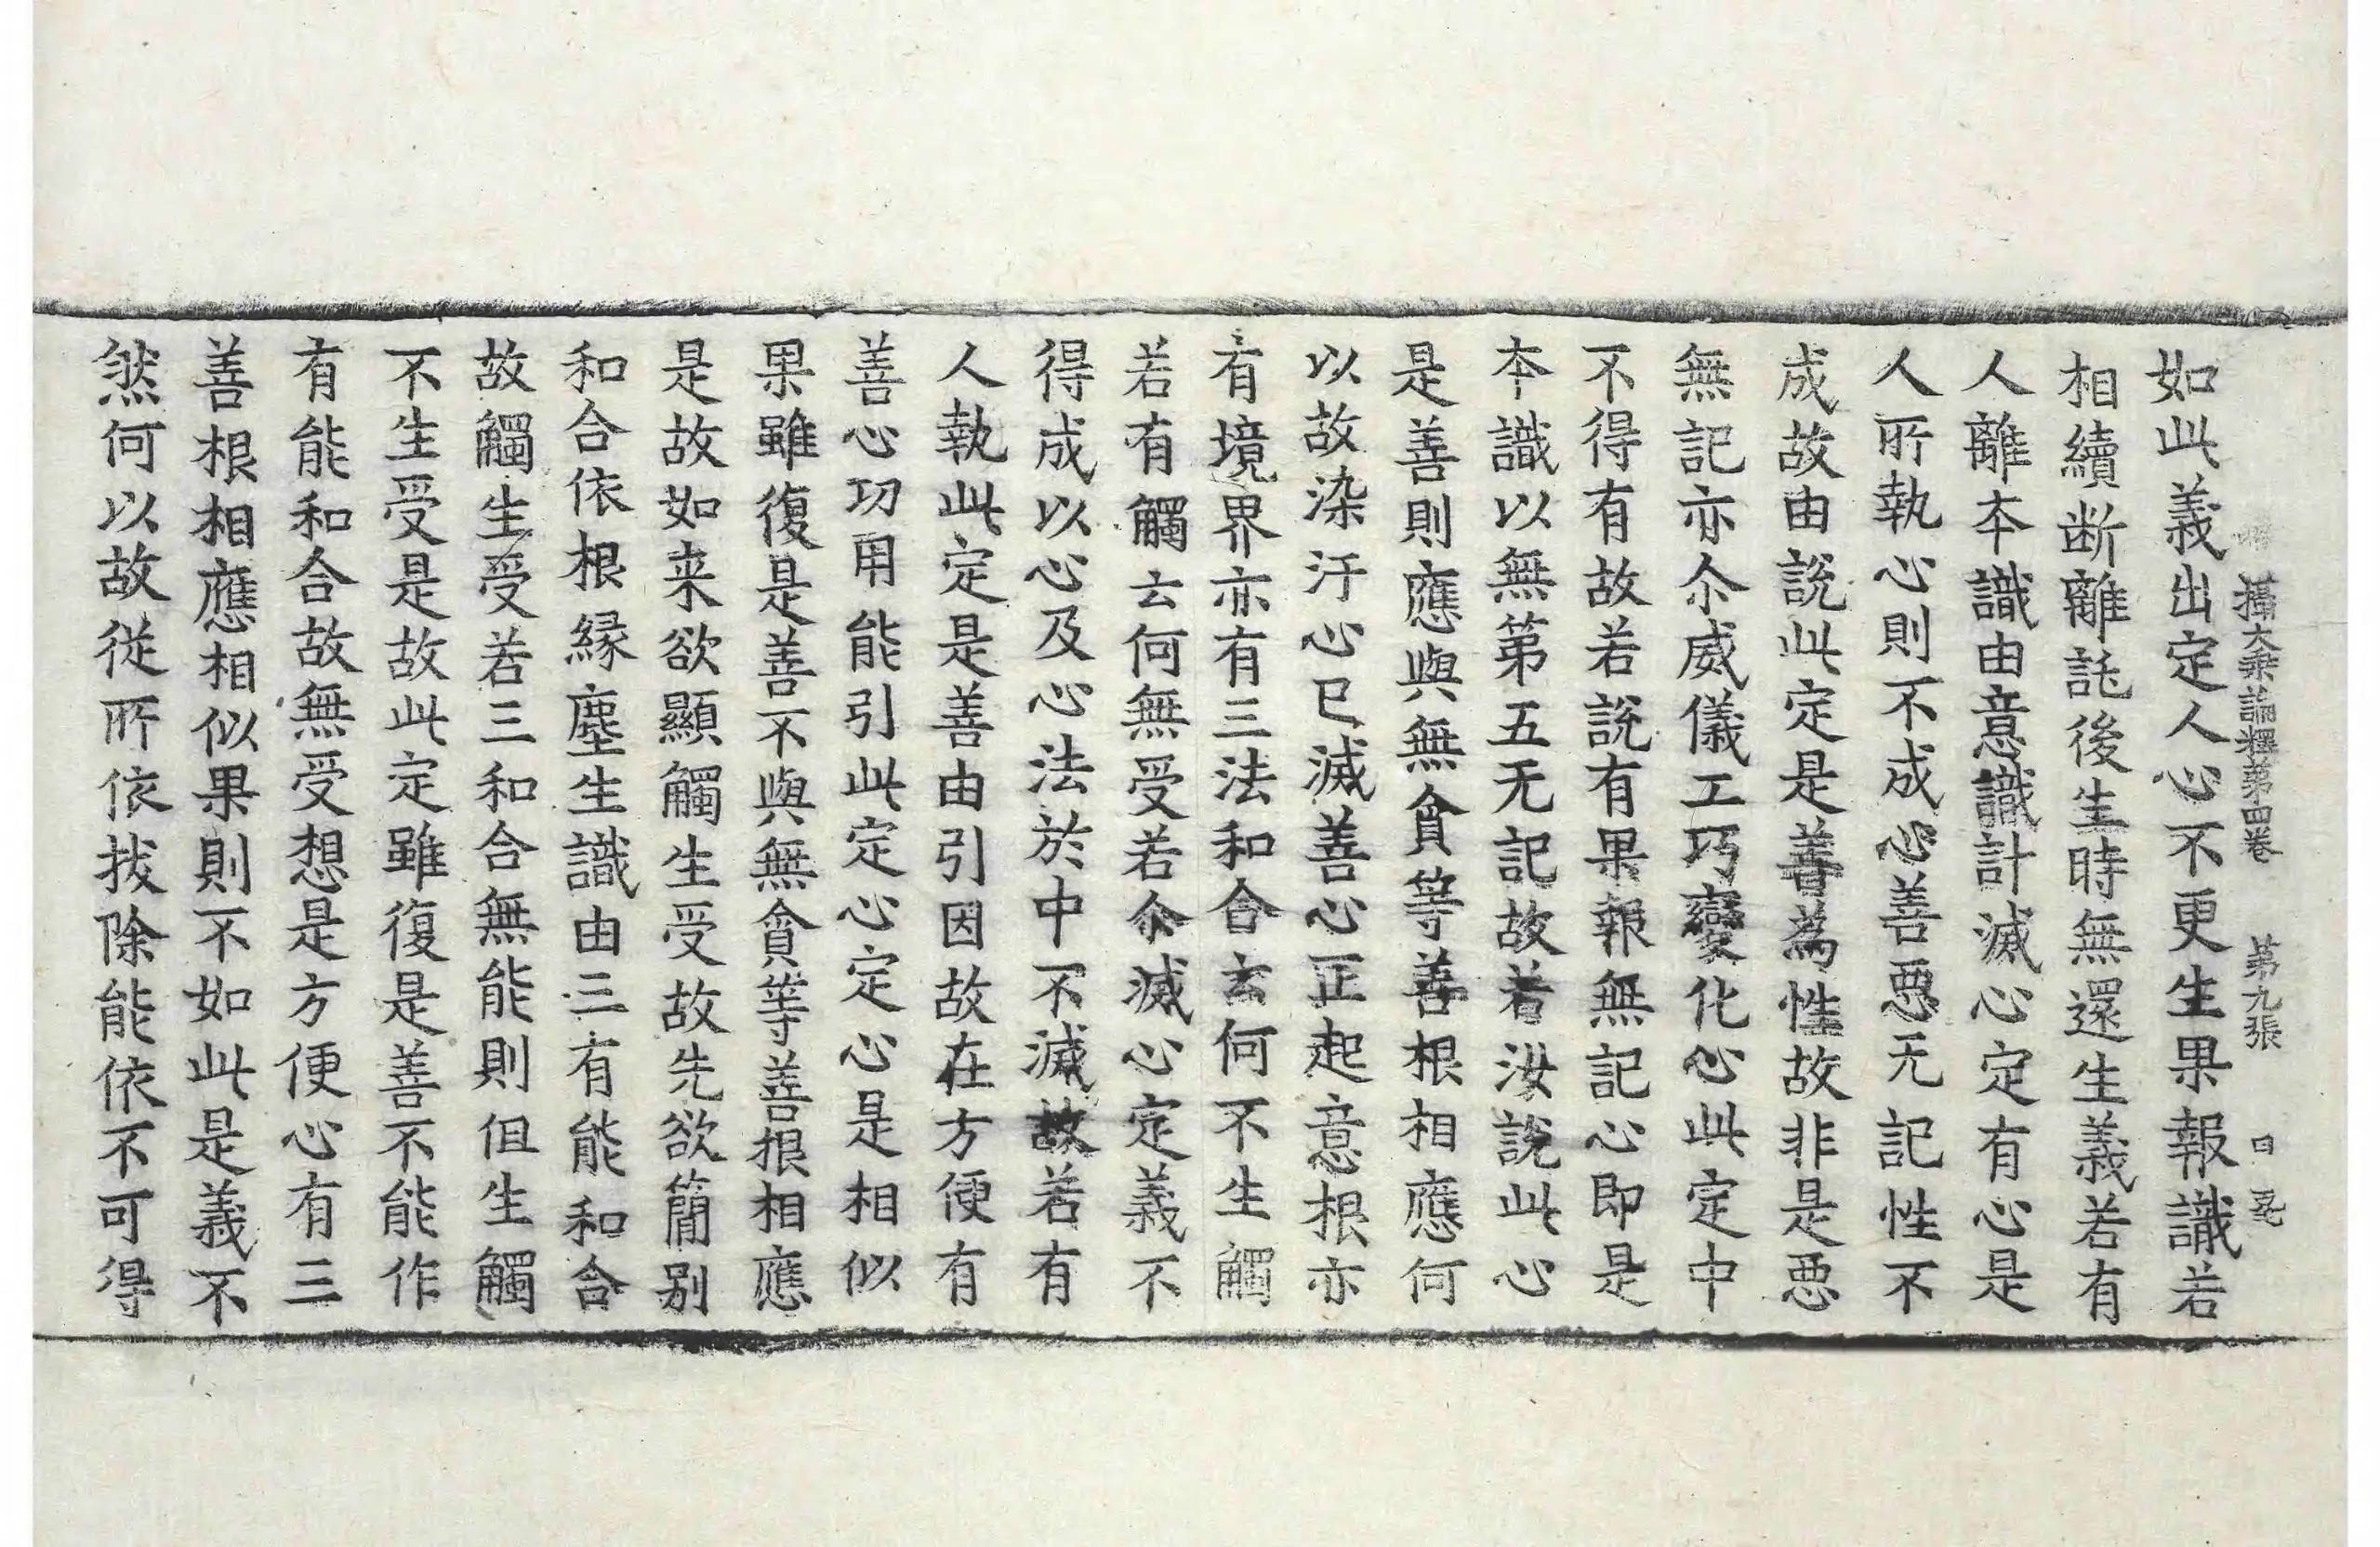 攝大乘論釋第四卷　第九張
如此義出定人心不更生果報識若
相續断離託後生時無還生義若有
人離夲識由意識計滅心定有心是
人所執心則不成心善惡无記性不
成故由說此定是善為性故非是惡
無記亦尒威儀工巧變化心此定中
不得有故若説有果報無記心即是
夲識以無第五无記故若汝說此心
是善則應與無貪等善根相應何
以故染汙心已滅善心正起意根亦
有境界亦有三法和合云何不生觸
若有觸云何無受若尒滅心定義不
得成以心及心法於中不滅故若有
人執此定是善由引因故在方便有
善心功用能引此定心定心是相似
果雖復是善不與無貪等善根相應
是故如来欲顯觸生受故先欲簡别
和合依根縁塵生識由三有能和合
故觸生受若三和合無能則但生觸
不生受是故此定雖復是善不能作
有能和合故無受想是方便心有三
善根相應相似果則不如此是義不
然何以故從所依拔除能依不可得